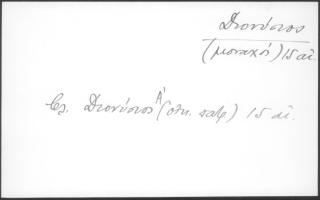 Διονύσιος
(μοναχός) 15 αἰ.
Βλ. Διονύσιος Α' (οικ. πατρ) 15 αἰ.